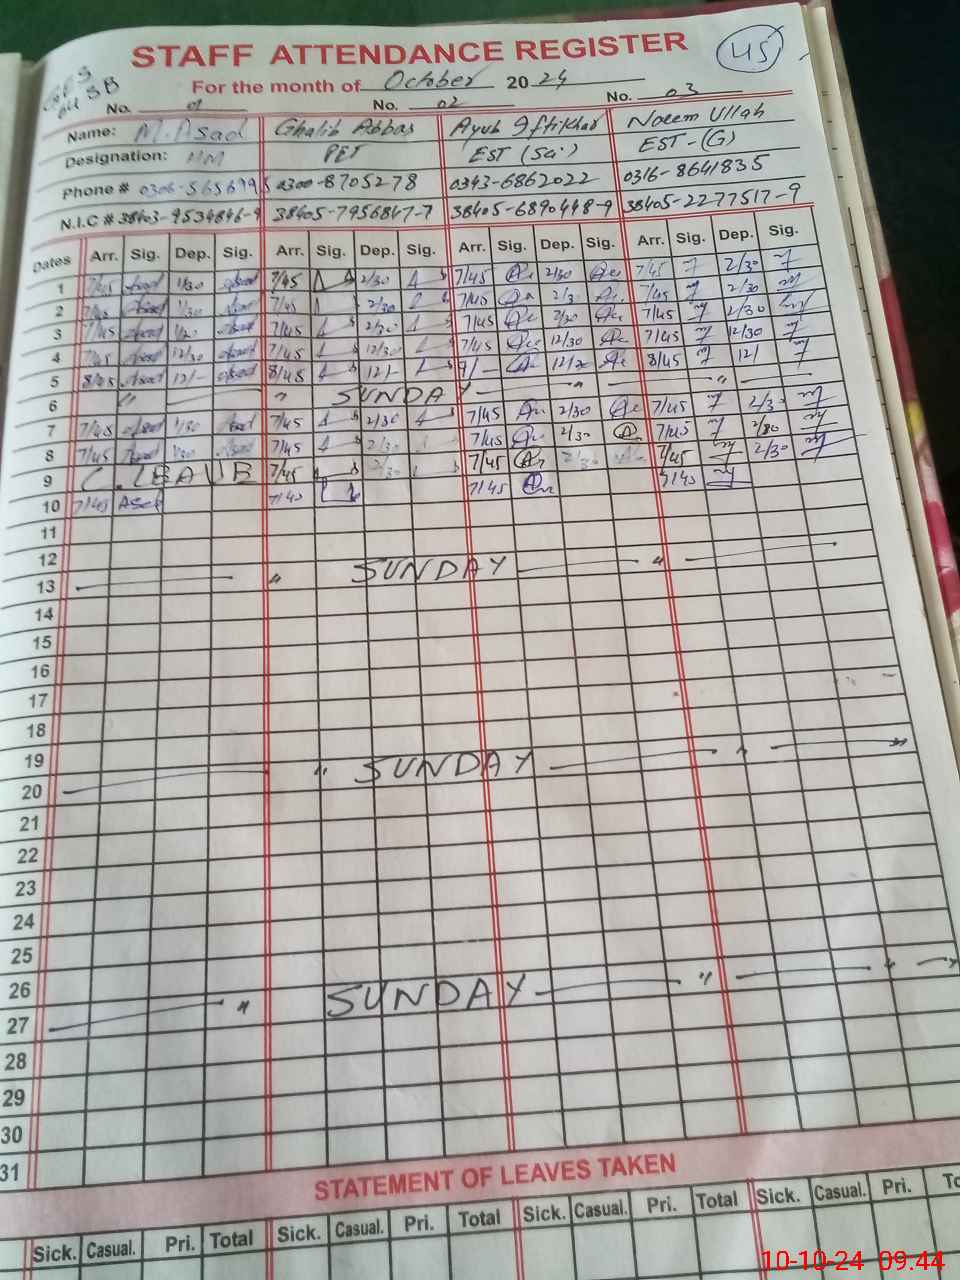 STAFF ATTENDANCE REGISTER
45
For the month of October 2024
No. 01 No. 02 No. 03
Name: M. Asad Ghalib Abbas Ayub Iftikhar Naeem Ullah
Designation: HM PET EST (Sci) EST-(G)
Phone # 0306-5656995 0300-8705278 0343-6862022 0316-8641835
N.I.C # 38403-9534846-9 38405-7956847-7 38405-6890448-9 38405-2277517-9
Dates Arr. Sig. Dep. Sig. Arr. Sig. Dep. Sig. Arr. Sig. Dep. Sig. Arr. Sig. Dep. Sig.
1 7/45 Asad 1/30 Asad 7/45 2/30 7/45 2/30 7/45 2/30
2 7/45 Asad 1/30 Asad 7/45 2/30 7/45 2/30 7/45 2/30
3 7/45 Asad Asad 7/45 2/30 7/45 7/45 2/30
4 7/45 Asad 12/30 Asad 7/45 12/30 7/45 12/30 7/45 12/30
5 8/45 Asad 12/- Asad 8/45 12/- 9/- 8/45 12/
6 " " SUNDAY " "
7 7/45 Asad 1/30 Asad 7/45 2/30 7/45 2/30 7/45 2/30
8 7/45 Asad 1/30 Asad 7/45 2/30 7/45 2/30 7/45
9 C.LEAVE 7/45 2/30 7/45 2/30 7/45 2/30
10 7/45 Asad 7/45 7/45 7/45
11
12
13 " SUNDAY "
14
15
16
17
18
19
20 " SUNDAY "
21
22
23
24
25
26
27 " SUNDAY " "
28
29
30
31
STATEMENT OF LEAVES TAKEN
Sick. Casual. Pri. Total Sick. Casual. Pri. Total Sick. Casual. Pri. Total Sick. Casual. Pri.
10-10-24 09.44